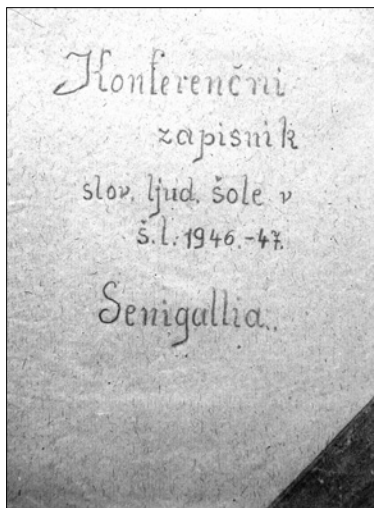 Konferenčni
zapisnik
slov. ljud. šole v
š.l. 1946.-47.
Senigallia.